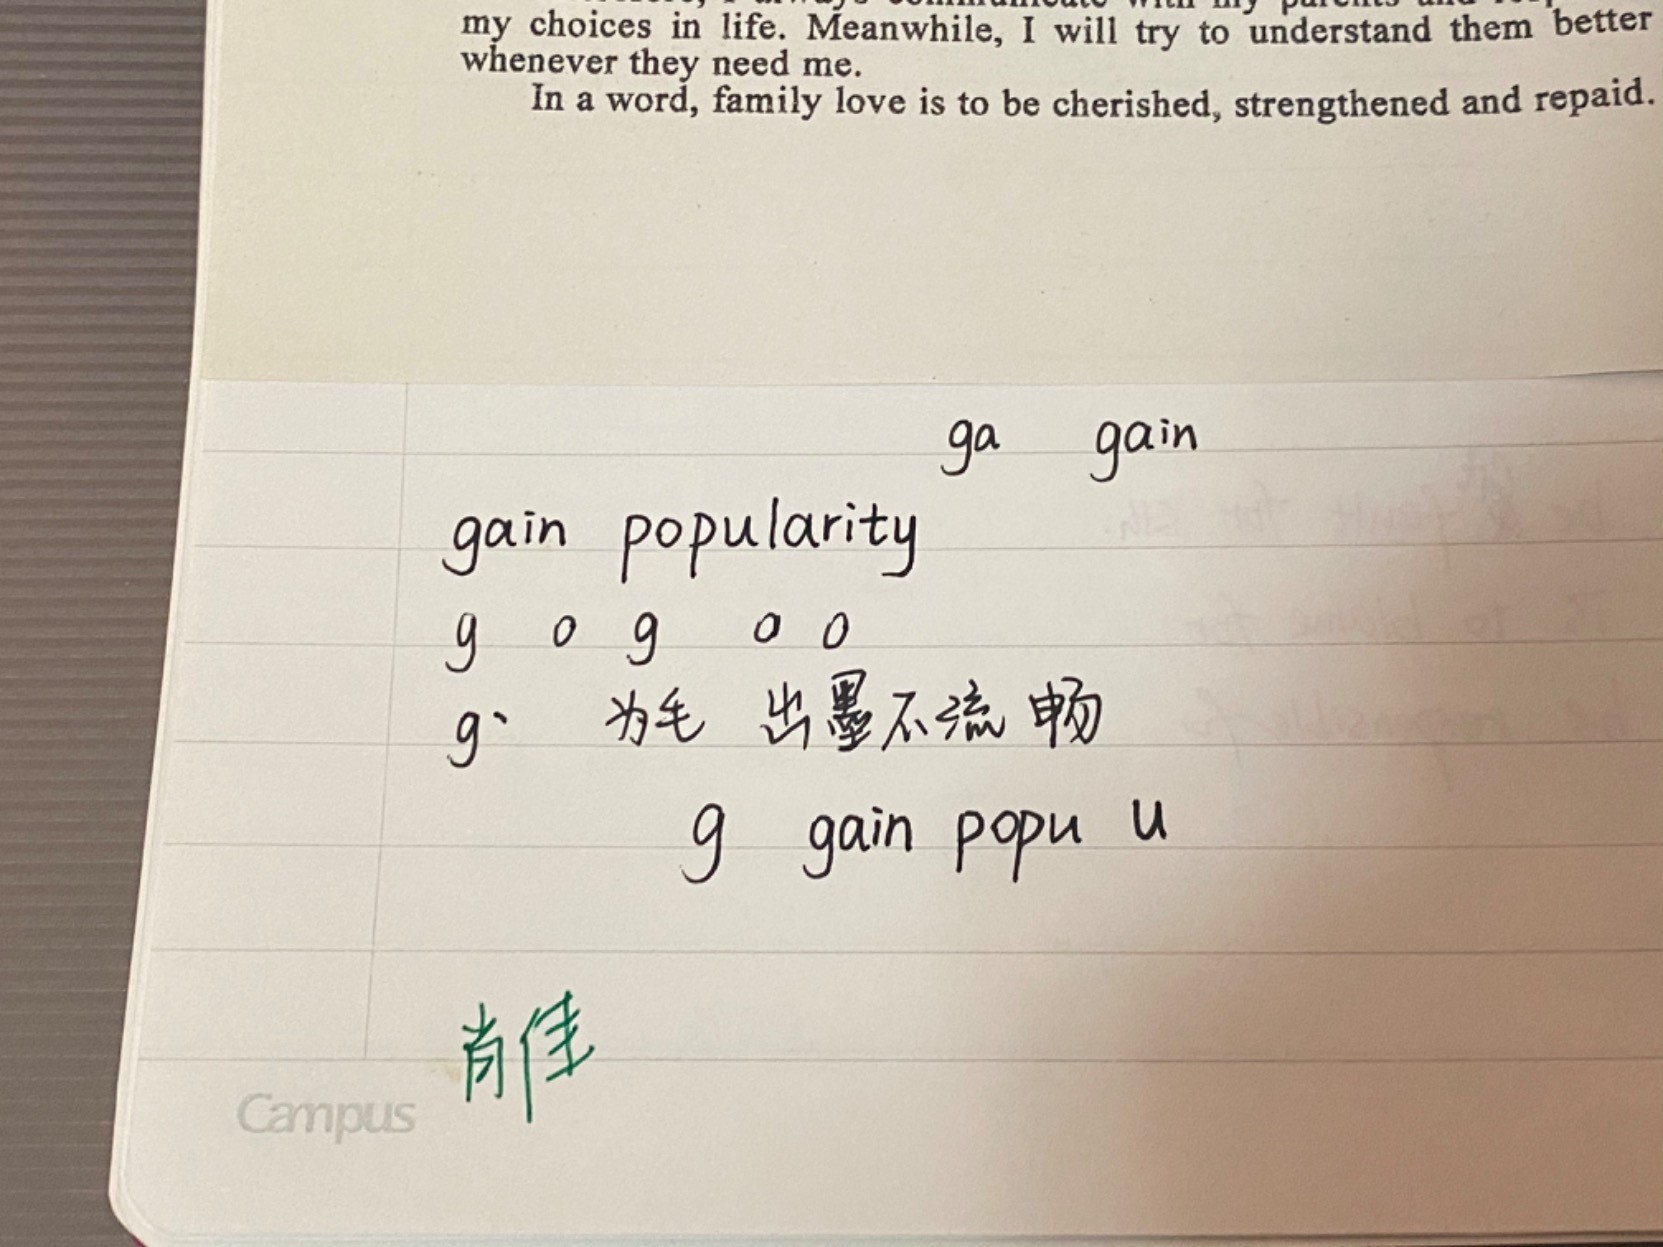 my choices in life. Meanwhile, I will try to understand them better
whenever they need me.
In a word, family love is to be cherished, strengthened and repaid.
ga gain
gain popularity
g o g o o
g、 为毛 出墨不流畅
g gain popu u
肖佳
Campus